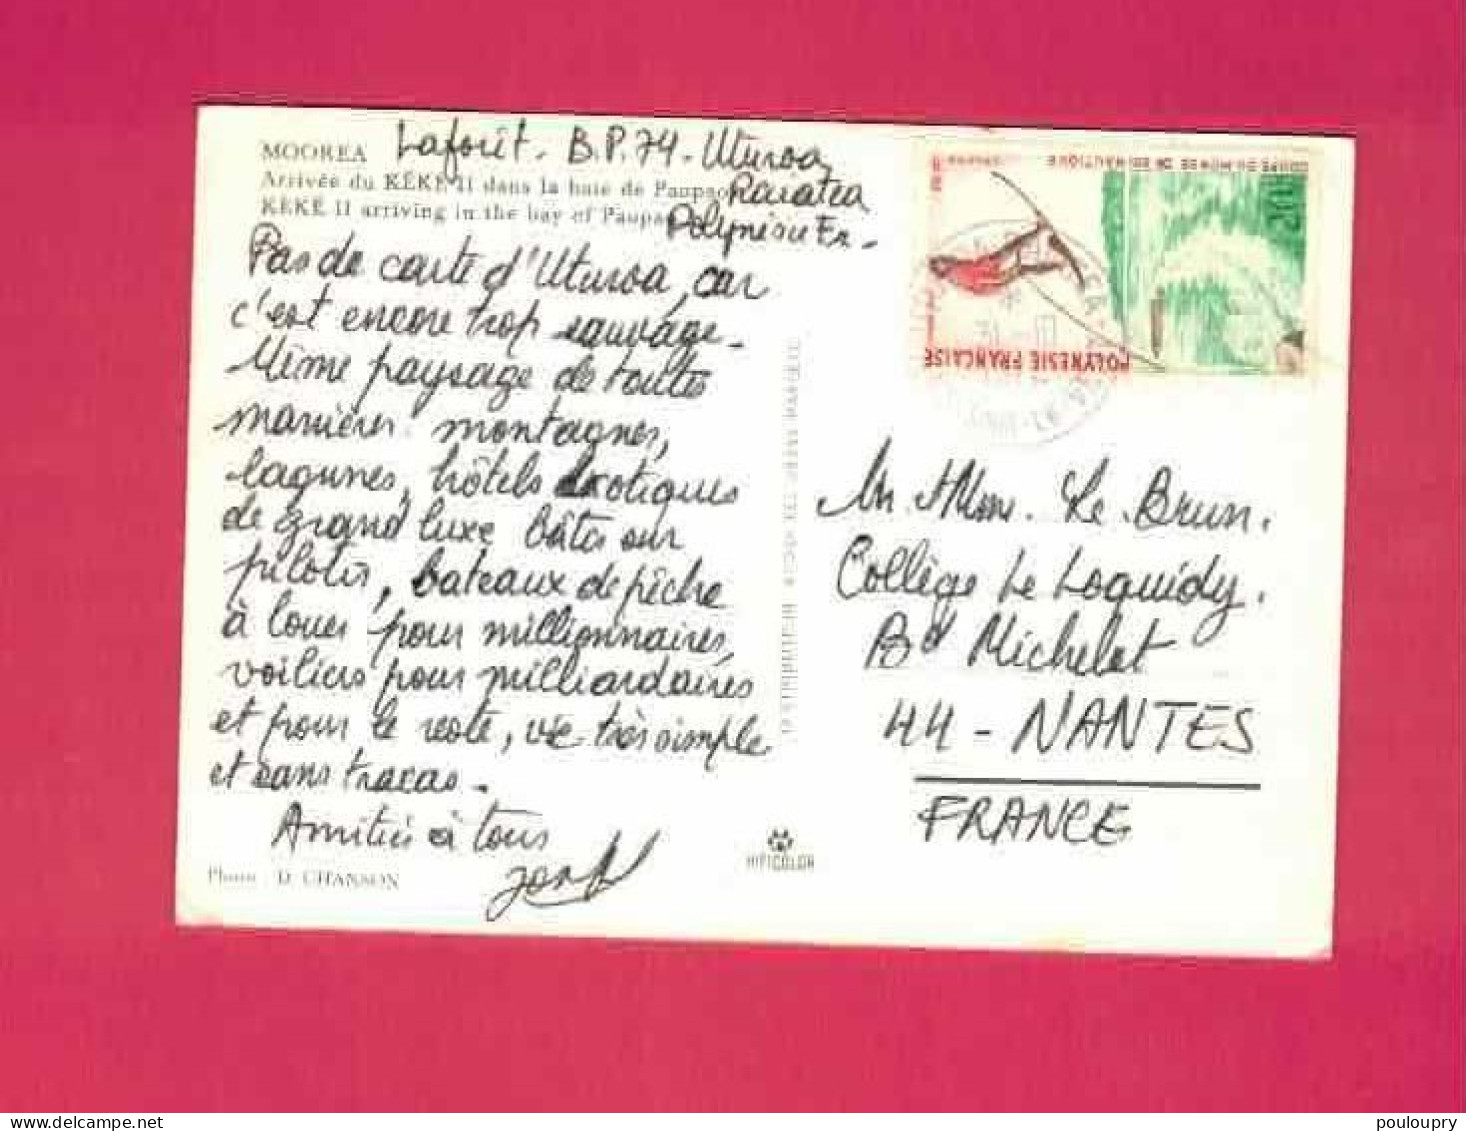 MOOREA
Laforêt - B.P. 74 - Uturoa
Raiatea
Polynésie Fr -
Arrivée du KÉKÉ II dans la baie de Paopao
KÉKÉ II arriving in the bay of Paopao
Pas de carte d'Uturoa, car
c'est encore trop sauvage -
Même paysage de toutes
manières : montagnes,
lagunes, hôtels exotiques
de grand luxe bâtis sur
pilotis, bateaux de pêche
à louer pour millionnaires,
voiliers pour milliardaires
et pour le reste, vie très simple
et sans tracas -
Amitiés à tous
Photo : D. CHANSON
HIFICOLOR
COUPE DU MONDE DE SKI NAUTIQUE
POLYNÉSIE FRANÇAISE
Mr & Mme. Le Brun.
Collège Le Loquidy.
Bd Michelet
44 - NANTES
FRANCE
pouloupry